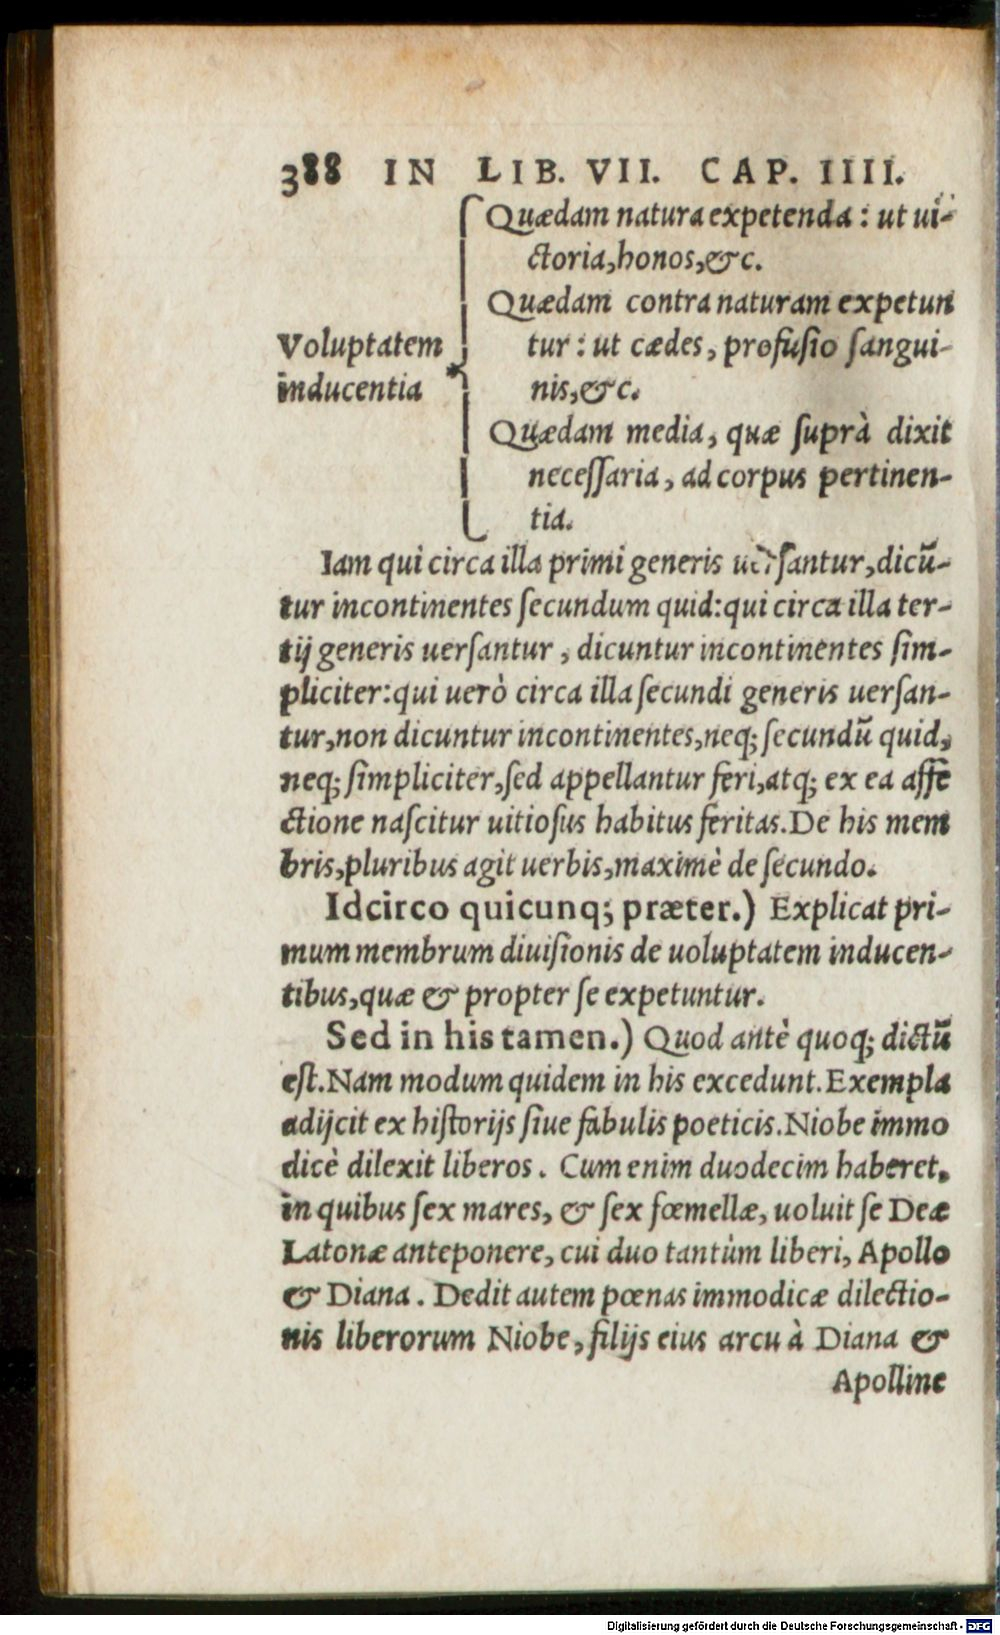 388 IN LIB. VII. CAP. IIII.
Quædam natura expetenda : ut ui-
ctoria, honos, &c.
Quædam contra naturam expetun
tur : ut cædes, profuſio ſangui-
nis, &c.
Quædam media, quæ ſuprà dixit
neceſſaria, ad corpus pertinen-
tia.
Voluptatem
inducentia
Iam qui circa illa primi generis uerſantur, dicũ-
tur incontinentes ſecundum quid: qui circa illa ter-
tij generis uerſantur, dicuntur incontinentes ſim-
pliciter: qui uerò circa illa ſecundi generis uerſan-
tur, non dicuntur incontinentes, neq; ſecundũ quid,
neq; ſimpliciter, ſed appellantur feri, atq; ex ea affe
ctione naſcitur uitioſus habitus feritas. De his mem
bris, pluribus agit uerbis, maximè de ſecundo.
Idcirco quicunq; præter.) Explicat pri-
mum membrum diuiſionis de uoluptatem inducen-
tibus, quæ & propter ſe expetuntur.
Sed in his tamen.) Quod antè quoq; dictũ
eſt. Nam modum quidem in his excedunt. Exempla
adijcit ex hiſtorijs ſiue fabulis poeticis. Niobe immo
dicè dilexit liberos. Cum enim duodecim haberet,
in quibus ſex mares, & ſex fœmellæ, uoluit ſe Deæ
Latonæ anteponere, cui duo tantùm liberi, Apollo
& Diana. Dedit autem pœnas immodicæ dilectio-
nis liberorum Niobe, filijs eius arcu à Diana &
Apolline
Digitalisierung gefördert durch die Deutsche Forschungsgemeinschaft - DFG